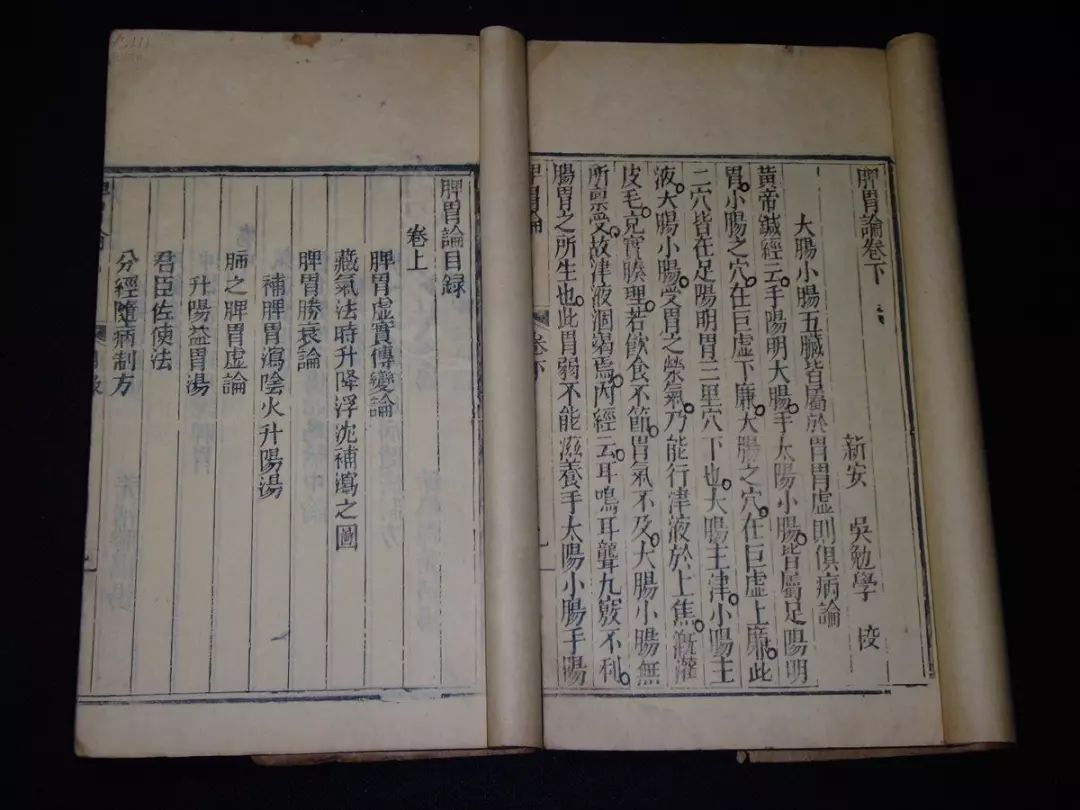 脾胃論卷下
新安 吳勉學 校
大腸小腸五臟皆屬於胃胃虛則俱病論
黃帝鍼經云。手陽明大腸。手太陽小腸。皆屬足陽明
胃。小腸之穴。在巨虛下廉。大腸之穴。在巨虛上廉。此
二穴皆在足陽明胃三里穴下也。大腸主津。小腸主
液。大腸小腸受胃之榮氣。乃能行津液於上焦。漑灌
皮毛。充實腠理。若飲食不節。胃氣不及。大腸小腸無
所稟受。故津液涸竭焉。內經云。耳鳴耳聾九竅不利。
腸胃之所生也。此胃弱不能滋養手太陽小腸手陽
脾胃論 卷下
脾胃論目录
卷上
脾胃虛實傳變論
藏氣法時升降浮沈補瀉之圖
脾胃勝衰論
補脾胃瀉陰火升陽湯
肺之脾胃虛論
升陽益胃湯
君臣佐使法
分經隨病制方